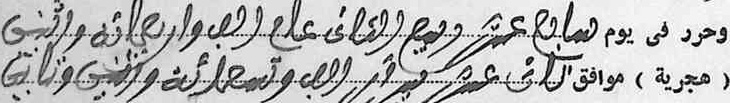 وحرر فى يوم سابع عشر ربيع الثانى عام الف واربعمائة واثنين
( هجرية ) موافق الثانى عشر فبراير الف وتسعمائة واثنين وثمانين